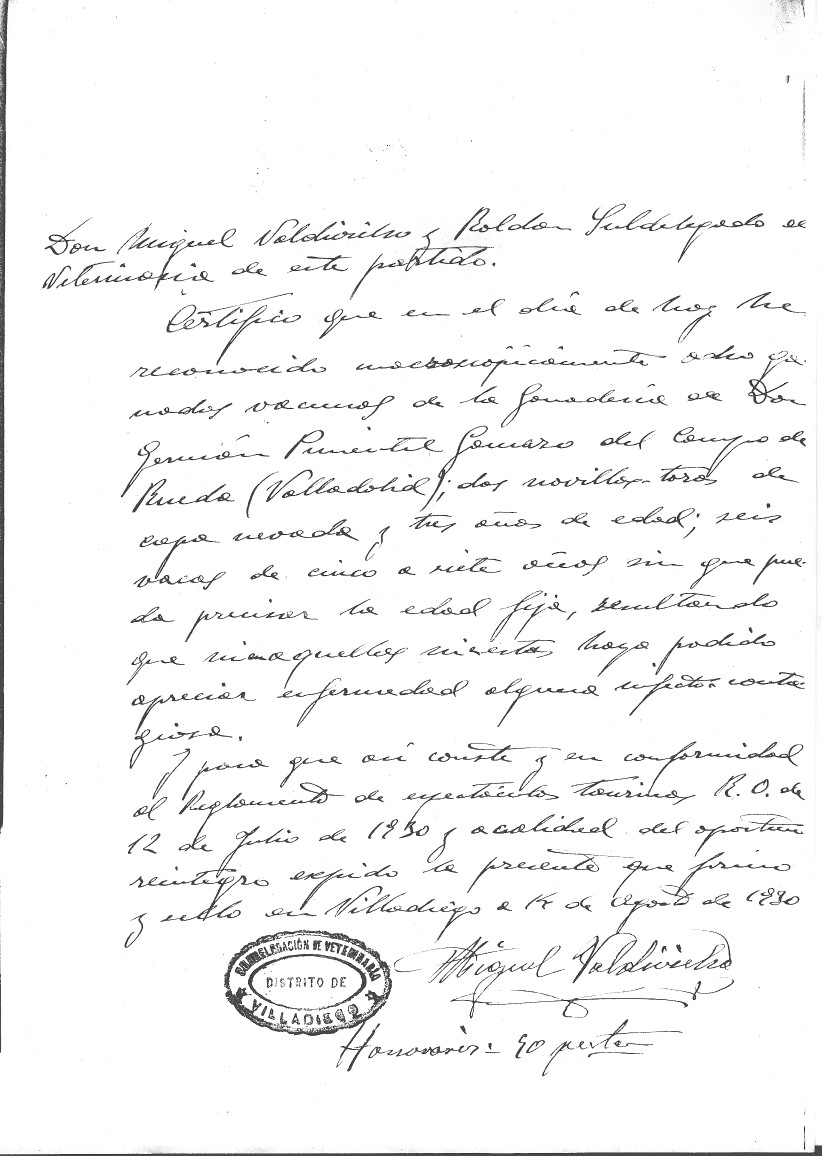 Don Miguel Valdivielso y Roldan Subdelegado de
Veterinaria de este partido.
Certifico que en el día de hoy he
reconocido macroscópicamente ocho ga-
nados vacunos de la Ganadería de Don
Germán Pimentel Gamazo del Campo de
Rueda (Valladolid); dos novillos-toros de
capa nevada y tres años de edad; seis
vacas de cinco a siete años sin que pue-
da precisar la edad fija, resultando
que ni en aquellos ni estas haya podido
apreciar enfermedad alguna infecto-conta-
giosa.
Y para que así conste y en conformidad
al Reglamento de espectáculos taurinos R. O. de
12 de Julio de 1930 y a calidad del oportuno
reintegro expido la presente que firmo
y sello en Villadiego a 14 de Agosto de 1930
Miguel Valdivielso
SUBDELEGACIÓN DE VETERINARIA
DISTRITO DE
VILLADIEGO
Honorarios: pesetas